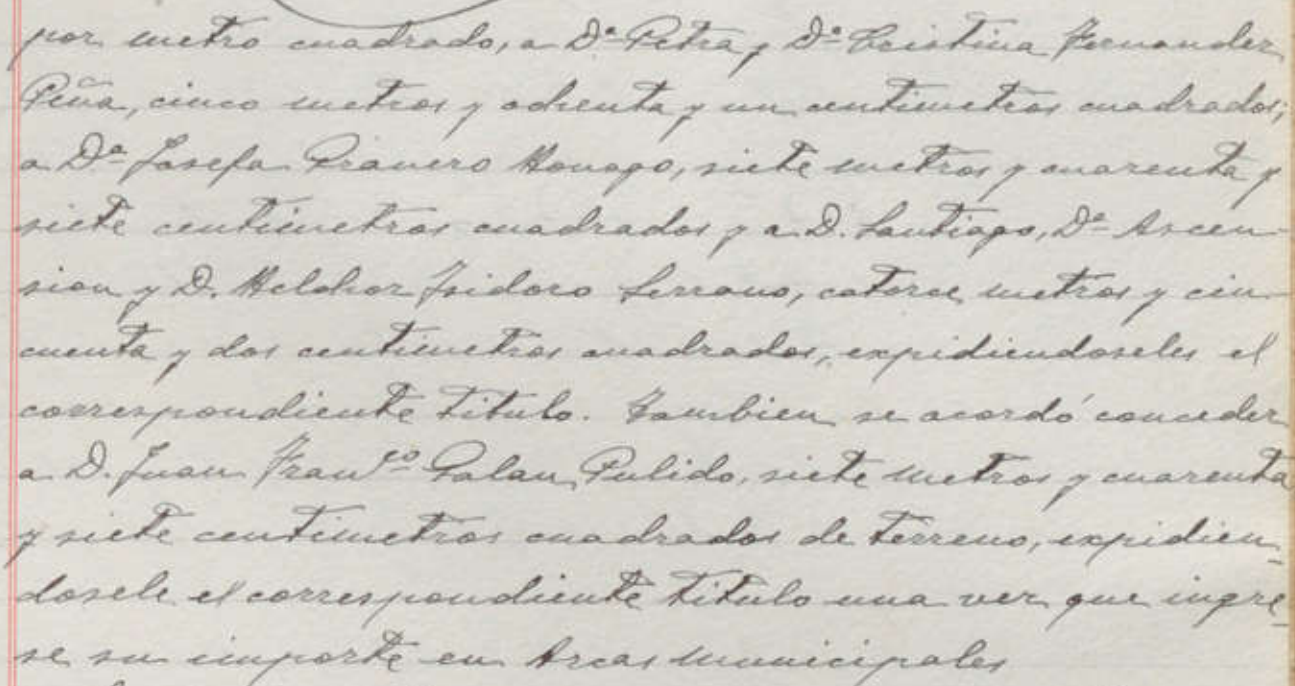 por metro cuadrado, a Dª Petra y Dª Cristina Fernandez
Peña, cinco metros y ochenta y un centimetros cuadrados;
a Dª Josefa Granero Monago, siete metros y cuarenta y
siete centimetros cuadrados y a D. Santiago, Dª Ascen-
sion y D. Melchor Isidoro Serrano, catorce metros y cin-
cuenta y dos centimetros cuadrados, expidiendoseles el
correspondiente titulo. Tambien se acordó conceder
a D. Juan Franᶜᵒ Galan Pulido, siete metros y cuarenta
y siete centimetros cuadrados de terreno, expidien-
dosele el correspondiente titulo una vez que ingre-
se su importe en Arcas municipales